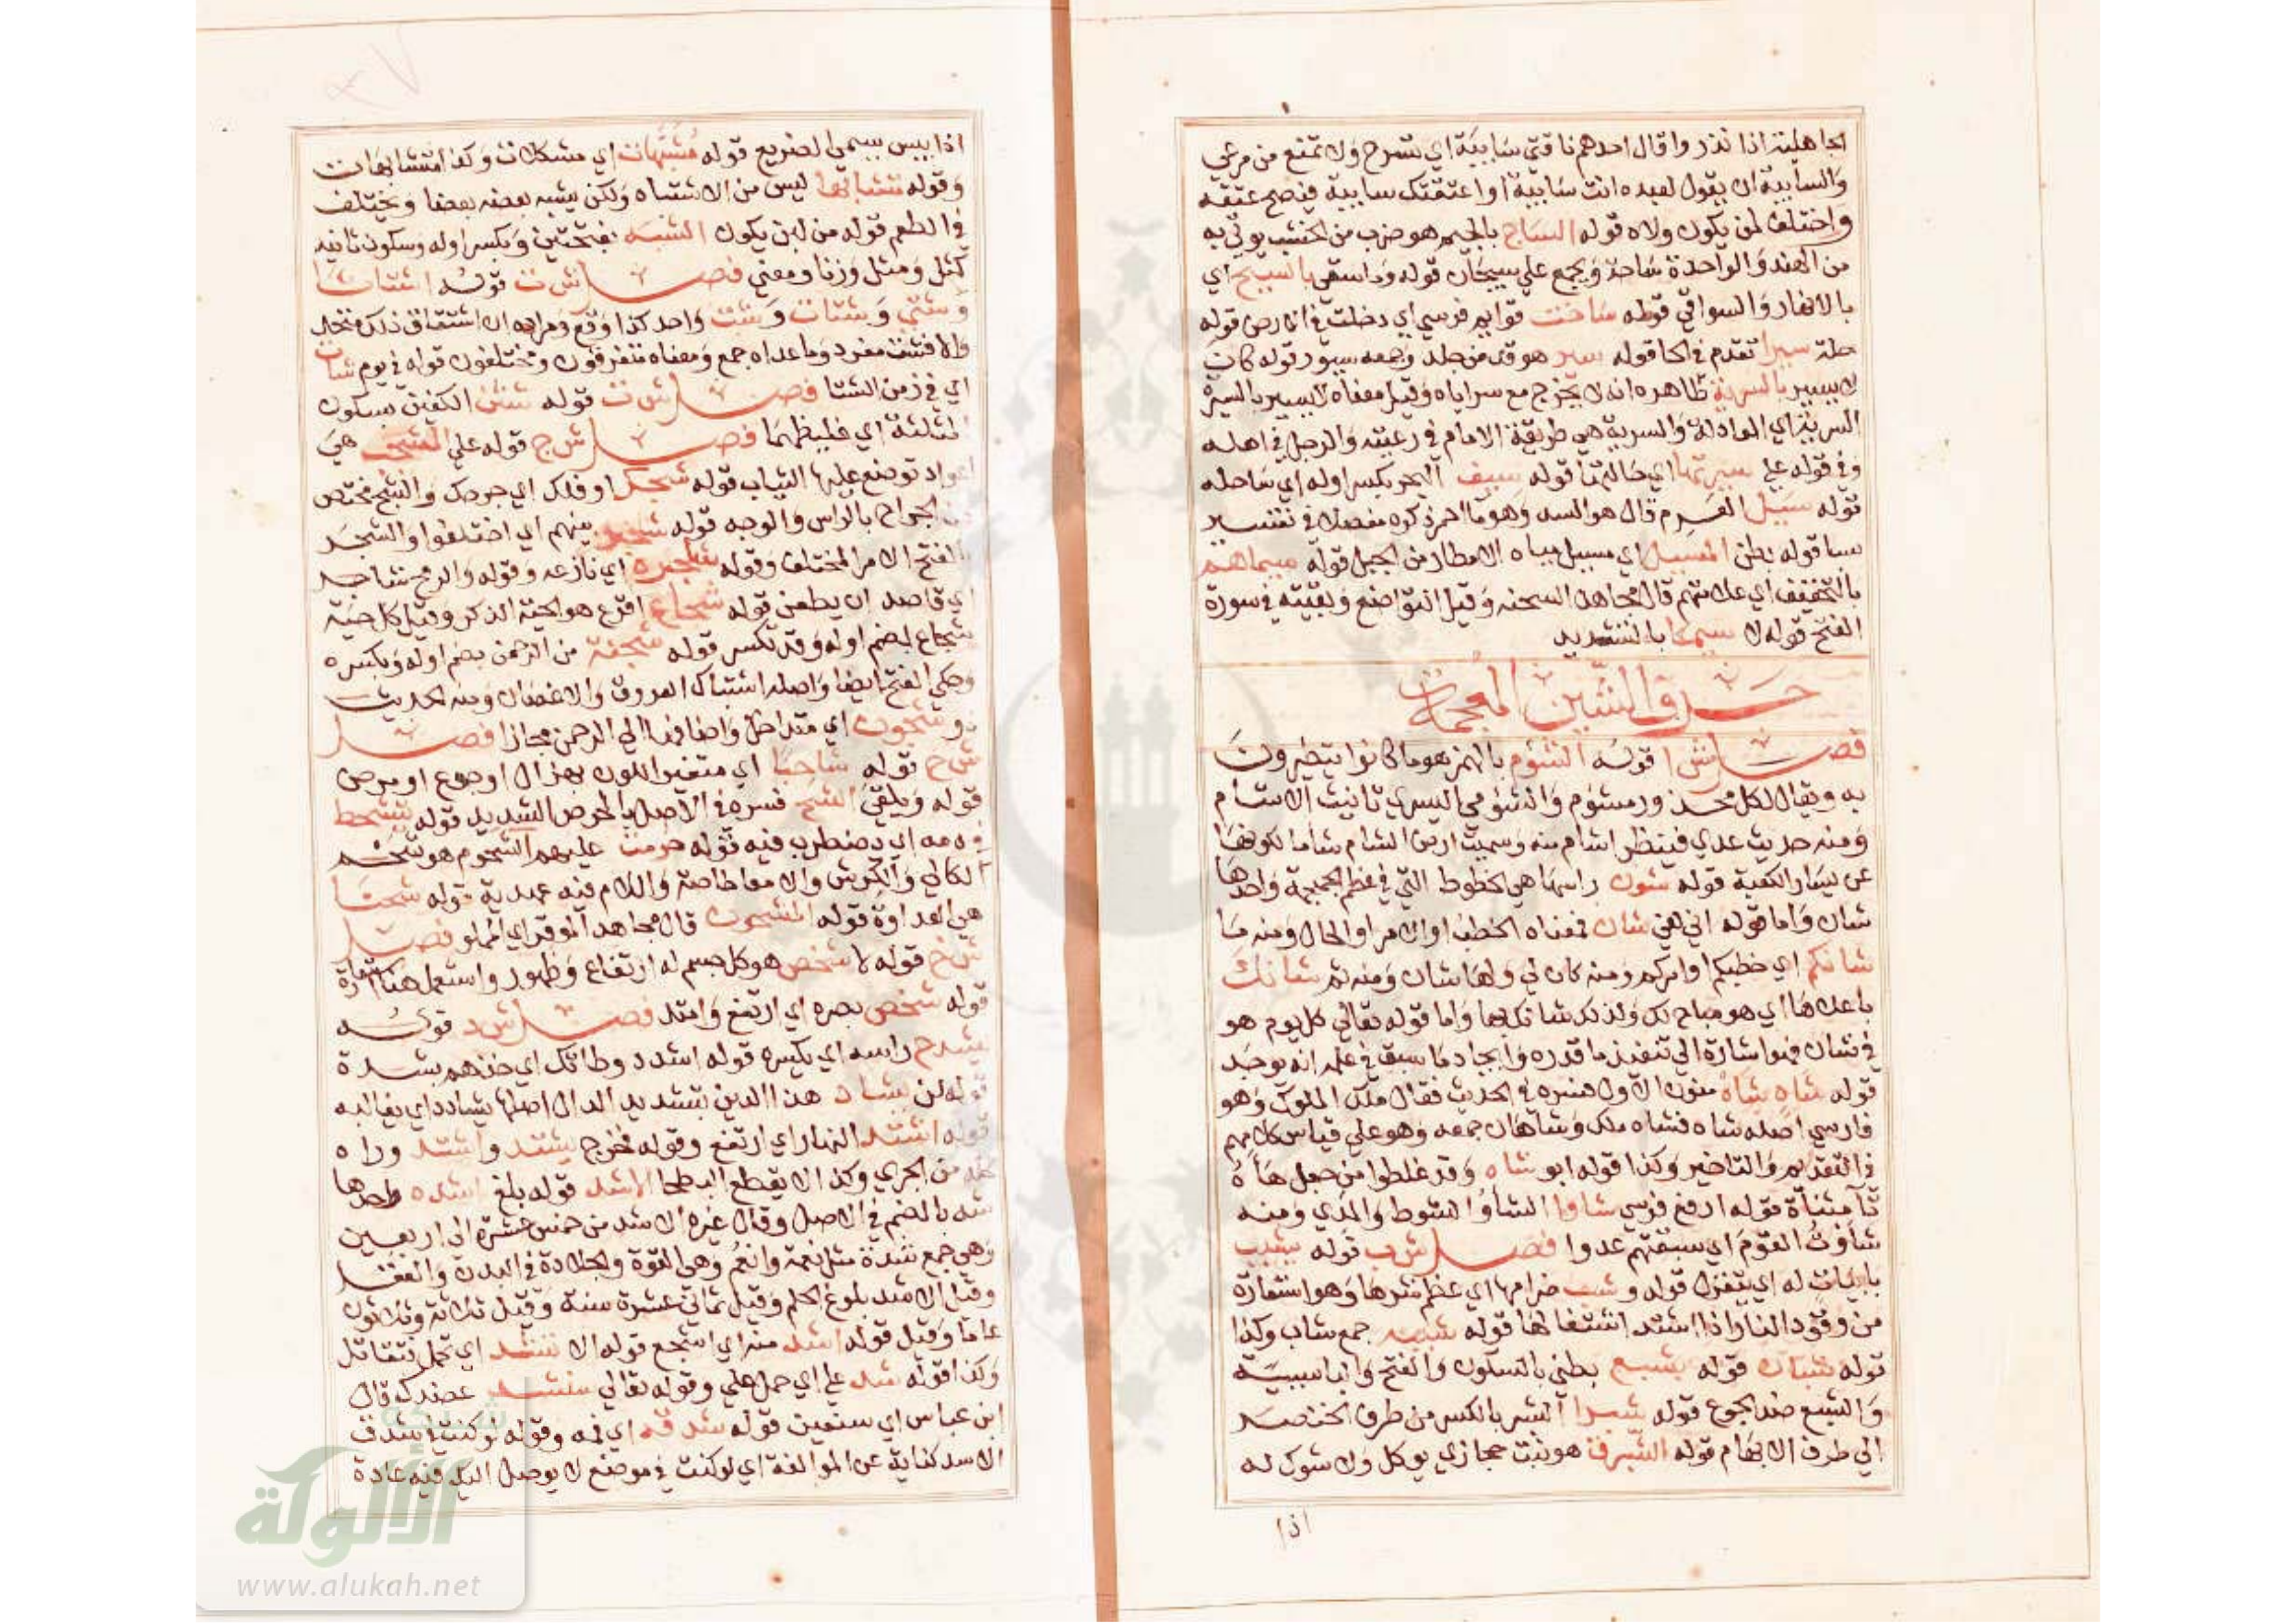 الجاهلية اذا نذر واقال احدهم ناقتي سَايبَة اي تسرح ولا تمنع من مرعي
والسايبة ان يقول لعبده انت سَايبة او اعتقتك سايبة فيصح عتقه
واختلف لمن يكون ولاه قوله الساج بالجيم هو ضرب من الخشب يوتي به
من الهند والواحدة ساجة ويجمع علي سيجان قوله وما سقي بالسيح اي
بالانهار والسواقي قوله ساخت قوايم فرسي اي دخلت في الارض قوله
حلة سيرا تقدم في الحا قوله سير هو قد من جلد وجمعه سيور قوله كان
لا يسير بالسرية ظاهره انه لا يخرج مع سراياه وقيل معناه لا يسير بالسيرة
السرية اي العادلة والسرية هي طريقة الامام في رعيته والرجل في اهله
وفي قوله علي سيرتها اي حالتها قوله سيف البحر بكسر اوله اي ساحله
قوله سيل العرم قال هو السد وهو ما احمر ذكره مفصلا في تفسير
سبا قوله بطن المسيل اي مسيل مياه الامطار من الجبل قوله سيماهم
بالتخفيف اي علامتهم قال مجاهد السحنه وقيل التواضع وبقيته في سورة
الفتح قوله لا سيما بالتشديد
حرف الشين المعجمة
فصل ش ا قوله الشؤم بالهمز هو ما كانوا يتطيرون
به ويقال لكل محذور مشؤم والشؤمي اليسري تانيث الاشام
ومنه حديث عدي فينظر اشام منه وسميت ارض الشام شاما لكونها
عن يسار الكعبة قوله شون راسها هي الخطوط التي في عظم الجمجمة واحدها
شان واما قوله اني لفي شان فمعناه الخطب او الامر او الحال ومنه ما
شانكم اي خطبكم او امركم ومنه كان لي ولها شان ومنه ثم شانك
باعلاها اي هو مباح لك ولذلك شانك بها واما قوله تعالي كل يوم هو
في شان فهو اشارة الي تنفيذ ما قدره وايجاد ما سبق في علمه انه يوجد
قوله شاه شاه منون الاول فسره في الحديث فقال ملك الملوك وهو
فارسي اصله شاه فشاه ملك وشاهان جمعه وهو علي قياس كلامهم
في التقديم والتاخير وكذا قوله ابو شاه وقد غلطوا من جعل هاءه
تآ مثناة قوله ارفع فرسي شاوا الشاؤ الشوط والمدي ومنه
شاوت القوم اي سبقتهم عدوا فصل ش ب قوله يشبب
بابيات له اي يتغزل قوله وشب ضرامها اي عظم شرها وهو استعارة
من وقود النار اذا اشتد اشتعالها قوله شببه جمع شاب وكذا
قوله شبان قوله بشبع بطني بالسكون والفتح والبا سببية
والشبع ضد الجوع قوله شبرا الشبر بالكسر من طرف الخنصر
الي طرف الابهام قوله الشبرق هو نبت حجازي يوكل وله شوك له
اذا
اذا يبس يسمي الضريع قوله مشبهات اي مشكلات وكذا متشابهات
وقوله متشابها ليس من الاشتباه ولكن يشبه بعضه بعضا ويختلف
في الطعم قوله من لبن يكون الشبه بفتحتين وبكسر اوله وسكون ثانيه
كمثل ومثل وزنا ومعني فصل ش ت قوله اشتاتا
وشتي وشتات وشت واحد كذا وقع ومراده ان اشتقاق ذلك متحد
والا فشت مفرد وما عداه جمع ومعناه متفرقون ومختلفون قوله في يوم شات
اي في زمن الشتا فصل ش ث قوله شثن الكفين بسكون
المثلثة اي غليظهما فصل ش ج قوله علي المشجب هي
اعواد توضع عليها الثياب قوله شجك او فلك اي جرحك والشج مختص
من الجراح بالراس والوجه قوله شجر بينهم اي اختلفوا والشجر
بالفتح الامر المختلف وقوله شاجره اي نازعه وقوله والرمح شاجر
اي قاصد ان يطعن قوله شجاع اقرع هو الحية الذكر وقيل كل حية
شجاع بضم اوله وقد تكسر قوله شجنة من الرحمن بضم اوله وبكسره
وحكي الفتح ايضا واصله اشتباك العروق والاغصان ومنه الحديث
ذو شجون اي متداخل واضافها الي الرحمن مجازا فصل
ش ح قوله شاحبا اي متغير اللون بهزال او جوع او مرض
قوله ويلقي الشح فسره في الاصل بالحرص الشديد قوله يتشحط
في دمه اي يضطرب فيه قوله حرمت عليهم الشحوم هو شحم
الكلي والكرش والامعا خاصة واللام فيه عهدية قوله شحنا
هي العداوة قوله المشحون قال مجاهد الموقر اي المملو فصل
ش خ قوله لا شخص هو كل جسم له ارتفاع وظهور واستعمل هنا استعارة
قوله شخص بصره اي ارتفع وامتد فصل ش د قوله
يشدخ راسه اي يكسره قوله اشدد وطاتك اي خذهم بشدة
قوله لن يشاد هذا الدين بتشديد الدال اصلها يشادد اي يغالبه
قوله اشتد النهار اي ارتفع وقوله فخرج يشتد واشتد وراه
كله من الجري وكذا لا يقطع البطحا الا شد قوله بلغ اشده واحدها
شد بالضم في الاصل وقال غيره الاشد من خمس عشرة الي اربعين
وهي جمع شدة مثل نعمة وانعم وهي القوة والجلادة في البدن والعقل
وقيل الاشد بلوغ الحلم وقيل ثماني عشرة سنة وقيل ثلاثة وثلاثون
عاما وقيل قوله اشد منه اي اشجع قوله الا تشد اي تحمل تتقاتل
وكذا قوله شد علي اي حمل علي وقوله تعالي سنشد عضدك قال
ابن عباس اي سنعين قوله شدقه اي فمه وقوله لو كنت في شدق
الاسد كناية عن الموالفة اي لو كنت في موضع لا يوصل اليك فيه عادة
شبكة
الألوكة
www.alukah.net